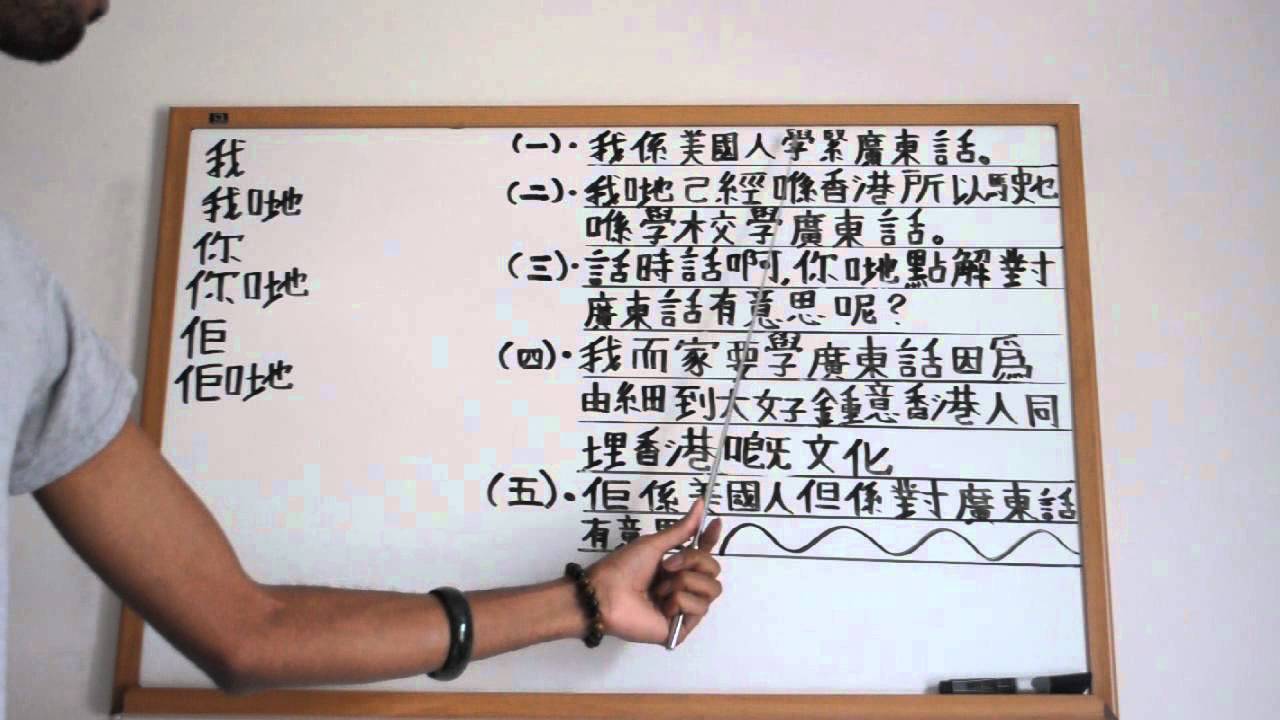 我
我哋
你
你哋
佢
佢哋
(一)·我係美國人學緊廣東話。
(二)·我哋己經喺香港所以駛乜
喺學校學廣東話。
(三)·話時話啊,你哋點解對
廣東話有意思呢？
(四)·我而家要學廣東話因為
由細到大好鍾意香港人同
埋香港嘅文化
(五)·佢係美國人但係對廣東話
有意思